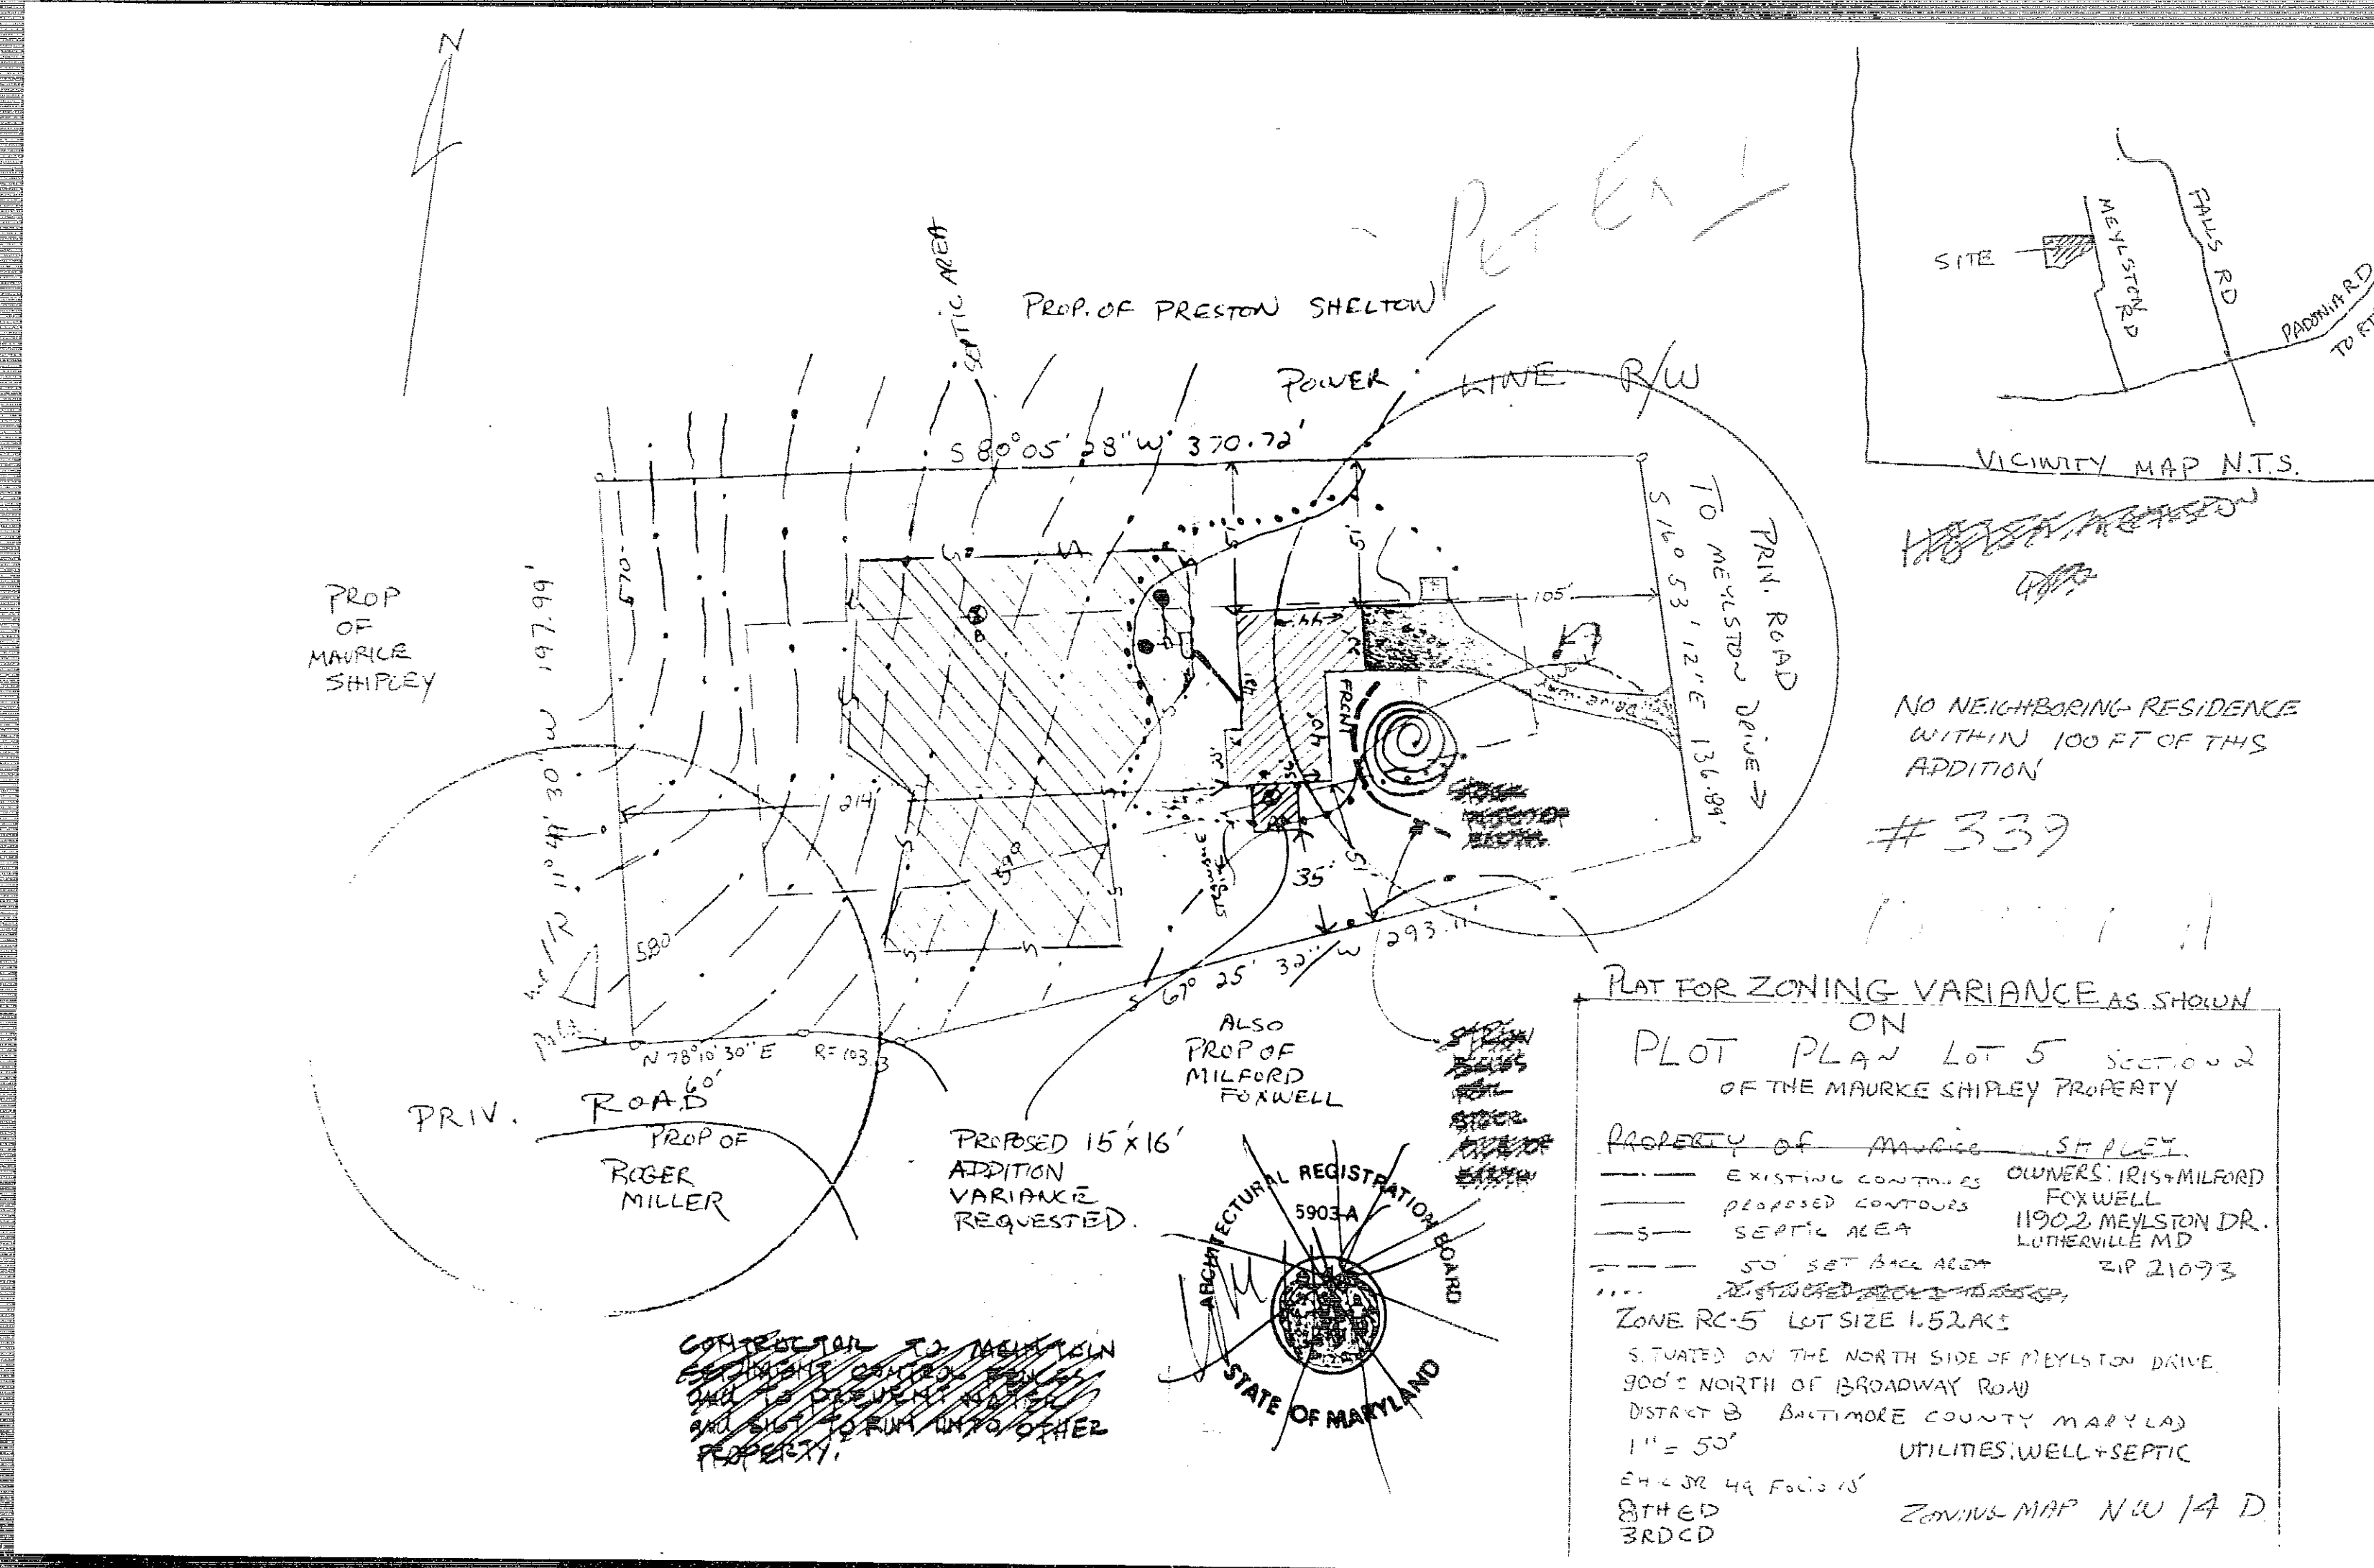 N
PET EX 1
SEPTIC AREA
PROP. OF PRESTON SHELTON
POWER LINE R/W
S 80° 05' 28" W 370.72'
SITE
MEYLSTON RD
FALLS RD
PADONIA RD
VICINITY MAP N.T.S.
PROP
OF
MAURICE
SHIPLEY
N 11° 44' 30" W 197.99'
570
51'
51'
105'
44'
FRONT
40'
DRIVE-WAY
S 16° 53' 12" E 136.89'
TO MEYLSTON DRIVE →
PRIV. ROAD
NO NEIGHBORING RESIDENCE
WITHIN 100 FT OF THIS
ADDITION
# 339
214'
590
580
35'
51'
S 67° 25' 32" W 293.11'
N 78° 10' 30" E
R=103.3
60'
PRIV. ROAD
PROP OF
ROGER
MILLER
ALSO
PROP OF
MILFORD
FOXWELL
PROPOSED 15' X 16'
ADDITION
VARIANCE
REQUESTED.
ARCHITECTURAL REGISTRATION BOARD
5903-A
STATE OF MARYLAND
CONTRACTOR TO MAINTAIN
SEDIMENT CONTROL FENCES
AND TO PREVENT WATER
AND SILT TO RUN UNTO OTHER
PROPERTY.
PLAT FOR ZONING VARIANCE AS SHOWN
ON
PLOT PLAN LOT 5 SECTION 2
OF THE MAURICE SHIPLEY PROPERTY
PROPERTY OF MAURICE SHIPLEY
EXISTING CONTOURS
PROPOSED CONTOURS
—S— SEPTIC AREA
50' SET BACK AREA
OWNERS: IRIS + MILFORD
FOXWELL
11902 MEYLSTON DR.
LUTHERVILLE MD
ZIP 21093
ZONE RC-5 LOT SIZE 1.52 AC±
SITUATED ON THE NORTH SIDE OF MEYLSTON DRIVE
900'± NORTH OF BROADWAY ROAD
DISTRICT 8 BALTIMORE COUNTY MARYLAD
1" = 50'
UTILITIES: WELL + SEPTIC
EHK JR 49 FOLIO 15
8TH ED
3RD CD
ZONING MAP NW 14 D